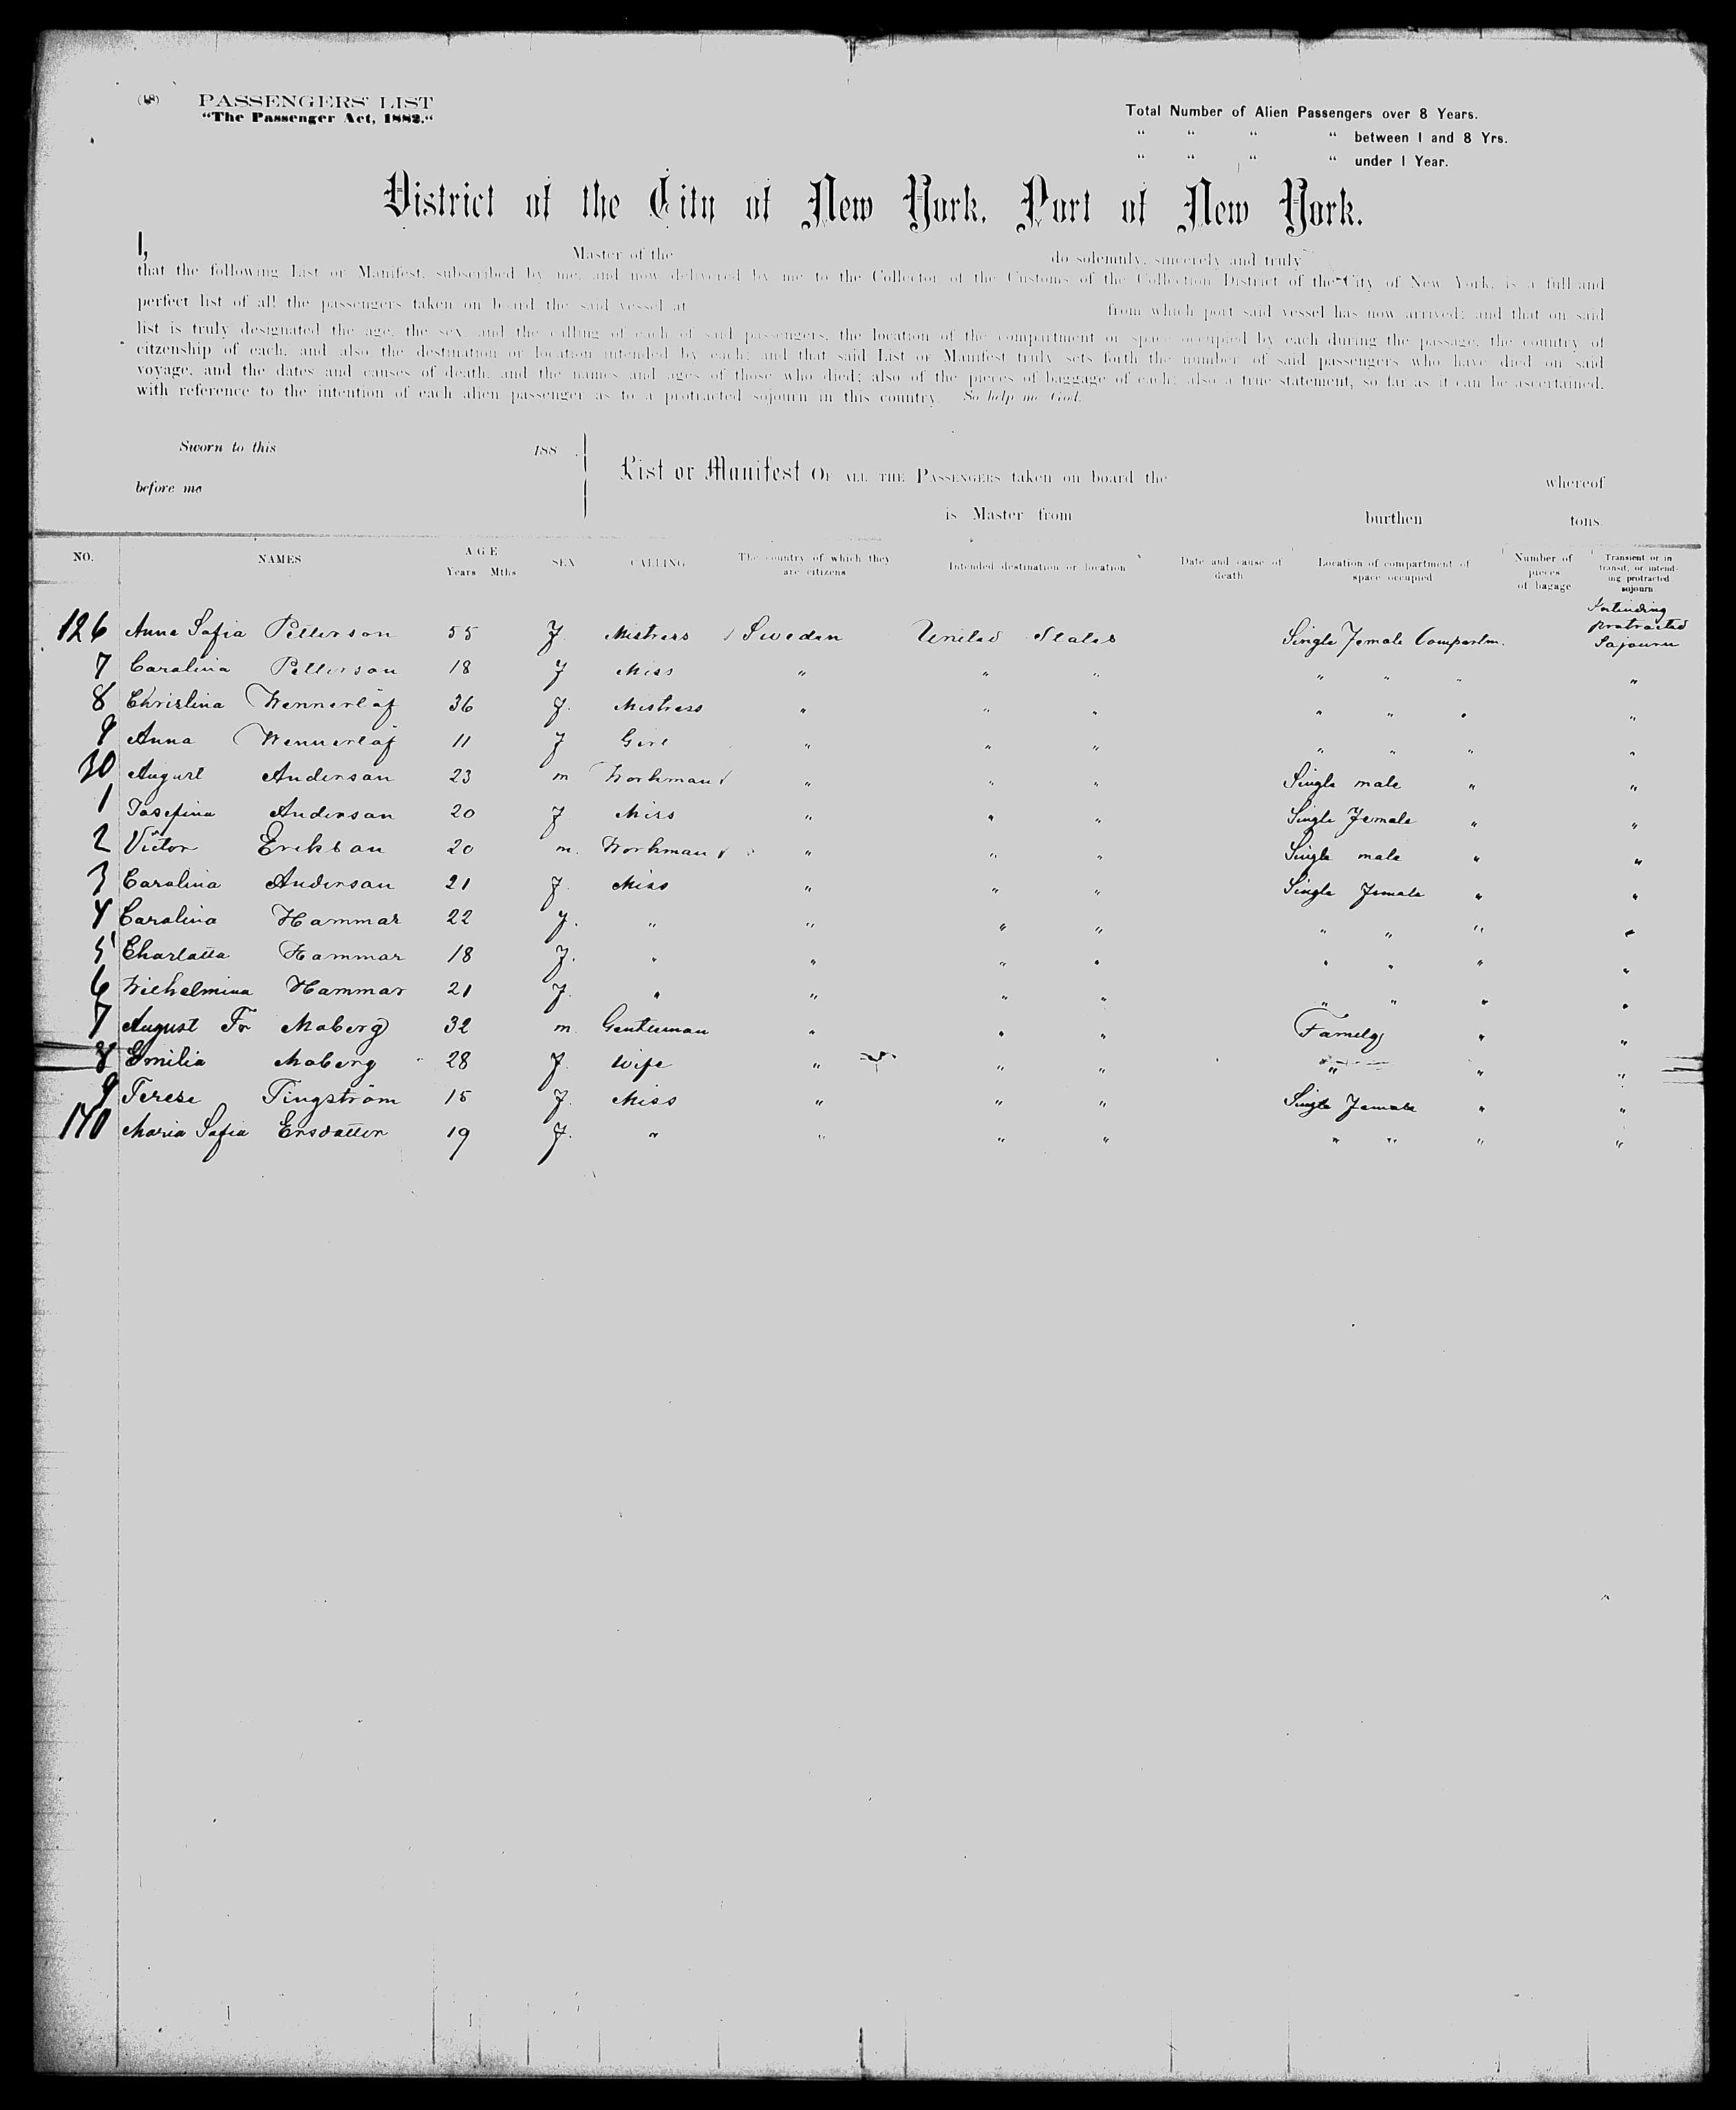 (18) PASSENGERS' LIST
"The Passenger Act, 1882."
Total Number of Alien Passengers over 8 Years.
" " " " between 1 and 8 Yrs.
" " " " under 1 Year.
District of the City of New York, Port of New York.
I, Master of the do solemnly, sincerely and truly
that the following List or Manifest, subscribed by me, and now delivered by me to the Collector of the Customs of the Collection District of the City of New York, is a full and
perfect list of all the passengers taken on board the said vessel at from which port said vessel has now arrived; and that on said
list is truly designated the age, the sex, and the calling of each of said passengers, the location of the compartment or space occupied by each during the passage, the country of
citzenship of each, and also the destination or location intended by each; and that said List or Manifest truly sets forth the number of said passengers who have died on said
voyage, and the dates and causes of death, and the names and ages of those who died; also of the pieces of baggage of each; also a true statement, so far as it can be ascertained,
with reference to the intention of each alien passenger as to a protracted sojourn in this country. So help me God.
Sworn to this 188
before me
List or Manifest OF ALL THE PASSENGERS taken on board the whereof
is Master from burthen tons.
NO. NAMES AGE Years Mths SEX CALLING The country of which they are citizens Intended destination or location Date and cause of death Location of compartment of space occupied Number of pieces of bagage Transient or in transit, or intending protracted sojourn
126 Anna Sofia Petterson 55 f. Mistress / Sweden United States Single Female Compartm. Intending protracted Sojourn
7 Carolina Petterson 18 f Miss " " " " " " "
8 Christina Wennerlöf 36 f. Mistress " " " " " " "
9 Anna Wennerlöf 11 f Girl " " " " " " "
30 August Anderson 23 m Workman " " " Single male " "
1 Josefina Anderson 20 f Miss " " " Single Female " "
2 Victor Erikson 20 m. Workman " " " Single male " "
3 Carolina Anderson 21 f. Miss " " " Single Female " "
4 Carolina Hammar 22 f. " " " " " " " "
5 Charlotta Hammar 18 f. " " " " " " " "
6 Wilhelmina Hammar 21 f. " " " " " " " "
7 August Fr Moberg 32 m. Gentleman " " " Family " "
8 Emilia Moberg 28 f. Wife " " " " " "
9 Terese Tingström 15 f. Miss " " " Single Female " "
140 Maria Sofia Ersdotter 19 f. " " " " " " " "